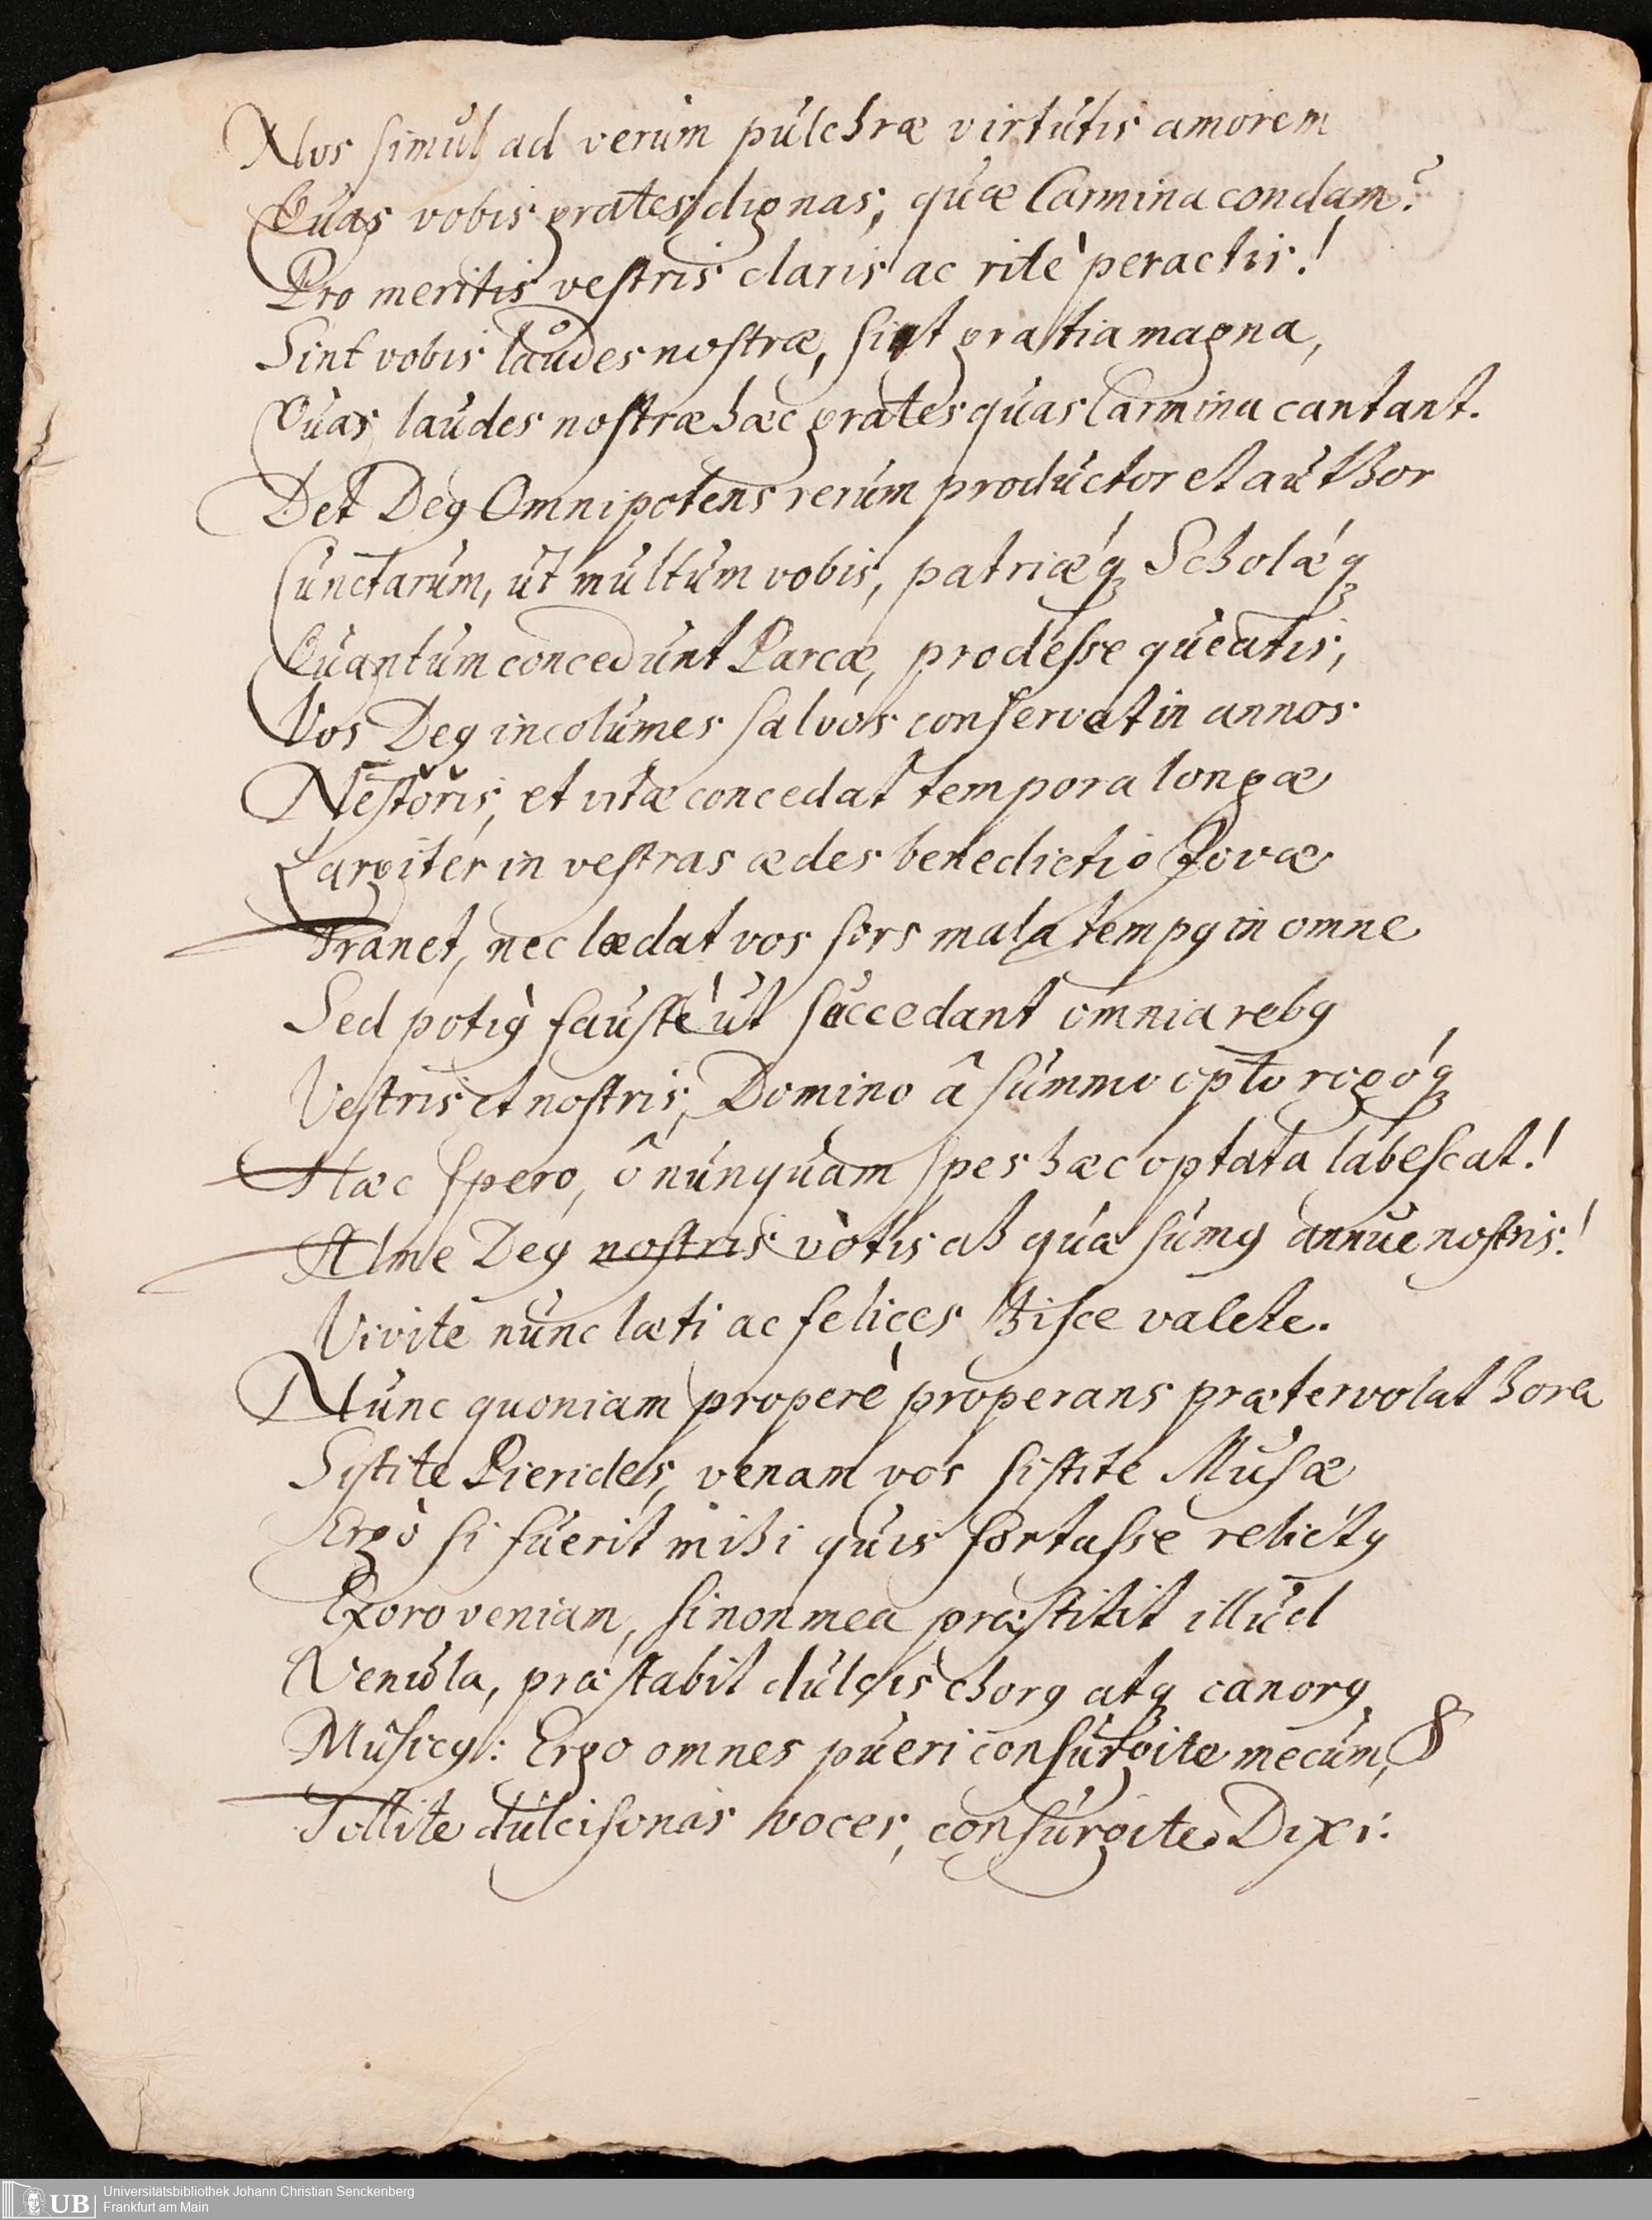 Nos simul ad verum pulchræ virtutis amorem
Quas vobis grates dignas, quæ Carmina condam?
Pro meritis vestris claris ac ritè peractis!
Sint vobis laudes nostræ, sint gratia magna,
Quas laudes nostræ hæc grates quas Carmina cantant.
Det Deꝰ Omnipotens rerum productor et author
Cunctarum, ut multum vobis, patriæq́ꝫ Scholæq́ꝫ
Quantum concedunt Parcæ, prodesse queatis,
Vos Deꝰ incolumes salvos conservat in annos
Nestŏrĭs, et vitæ concedat tempora longæ
Largiter in vestras ædes benedictio Jovæ
Tranet, nec lædat vos sors mala tempꝰ in omne
Sed potiꝰ faustè ut succedant omnia rebꝰ
Vestris et nostris, Domino â summo opto rogóqꝫ
Hæc spero, ô nunquam spes hæc optata labescat!
Alme Deꝰ nostris votis ah quæsumꝰ annue nostris!
Vivite nunc læti ac felices hisce valete.
Nunc quoniam properè properans prætervolat hora
Sistite Pierides, venam vos sistite Musæ
Ergò si fuerit mihi quis fortasse relictꝰ
Exoro veniam, si non mea præstitit illud
Venula, præstabit dulcis chorꝰ atqꝫ canorꝰ
Musicꝰ: Ergo omnes pueri consurgite mecum, &
Tollite dulcisonas voces, consurgite. Dixi:
UB
Universitätsbibliothek Johann Christian Senckenberg
Frankfurt am Main